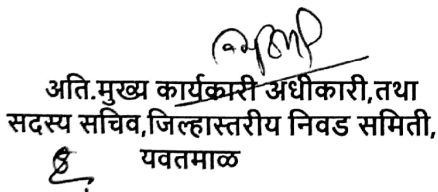 अति.मुख्य कार्यकारी अधीकारी,तथा
सदस्य सचिव,जिल्हास्तरीय निवड समिती,
यवतमाळ